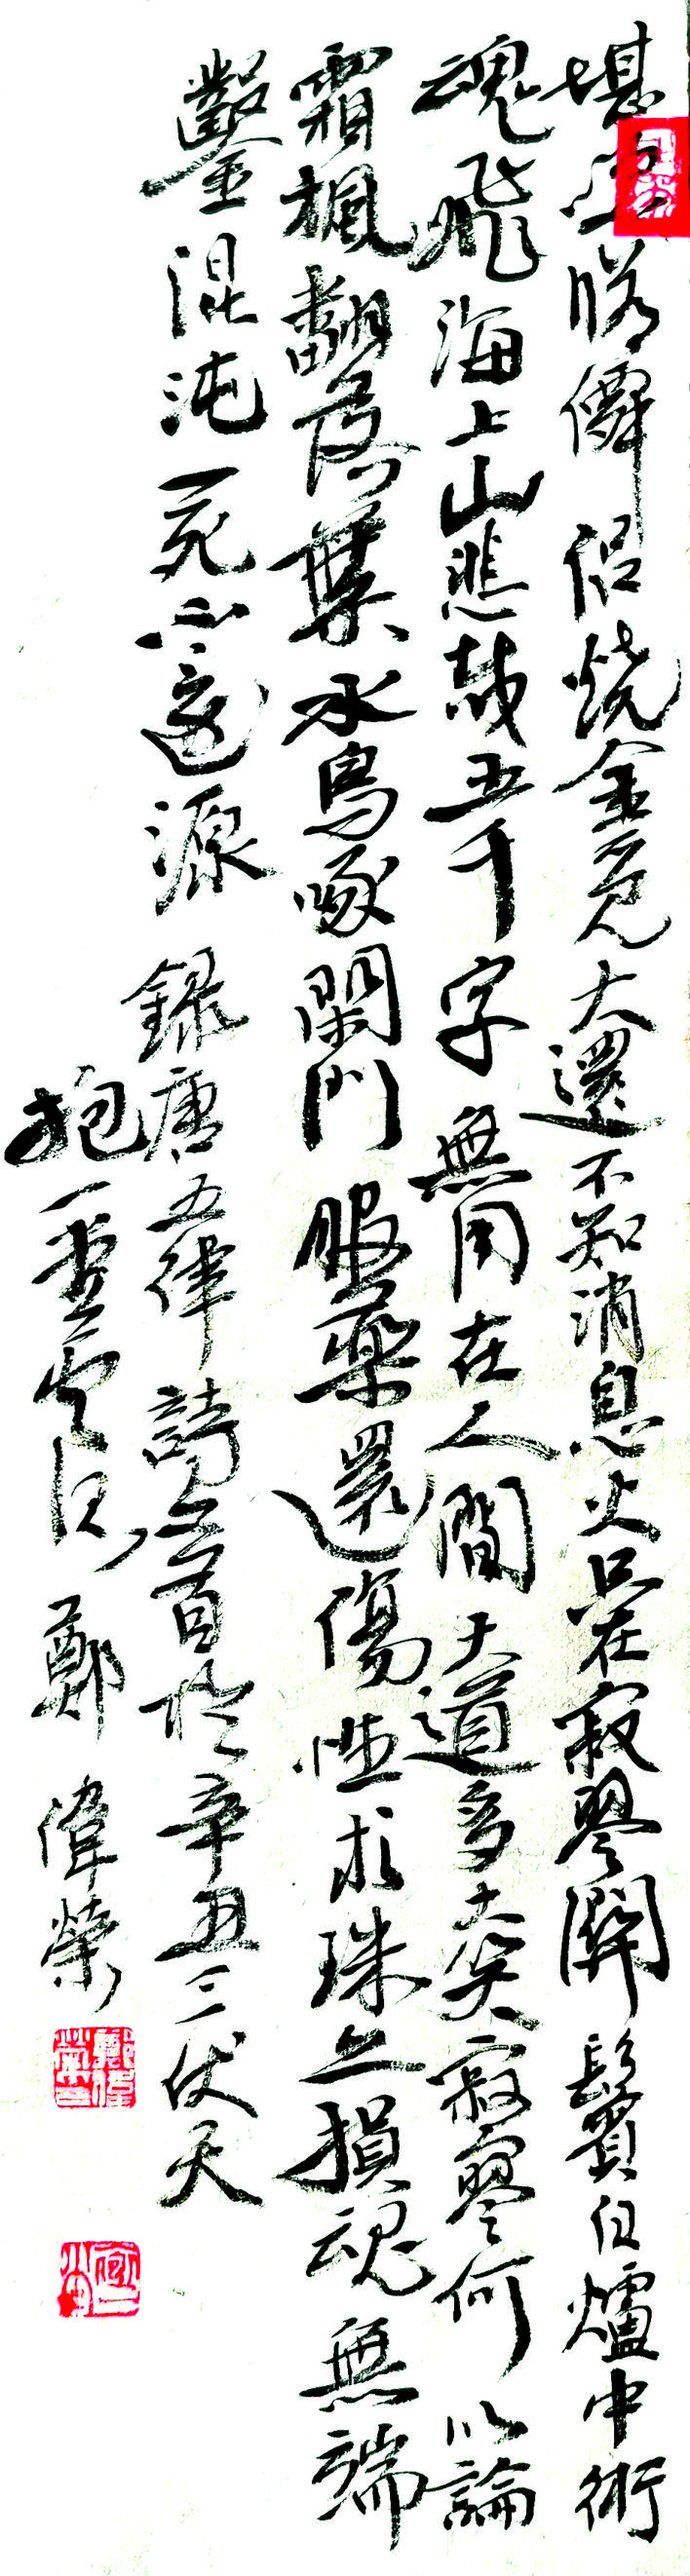 堪嗟勝僊侶燒金覓大還不知消息火只在寂寥關鬢白爐中術
魂飛海上山悲哉五千字無用在人間大道多大笑寂寥何以論
霜楓翻落葉水鳥啄閑門服藥還傷性求珠亦損魂無端
鑿混沌一死不還源錄唐五律詩二首於辛丑三伏天
抱一鄭偉榮
鄭偉榮